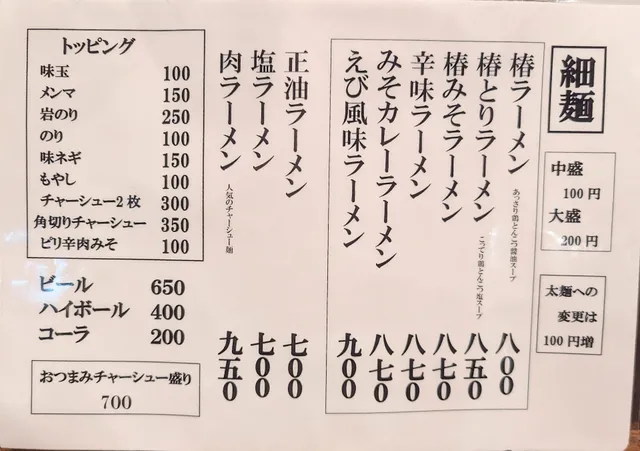 細麺
中盛
100円
大盛
200円
太麺への
変更は
100円増
椿ラーメン あっさり鶏とんこつ醤油スープ 八00
椿とりラーメン こってり鶏とんこつ塩スープ 八五0
椿みそラーメン 八七0
辛味ラーメン 八七0
みそカレーラーメン 八七0
えび風味ラーメン 九00
正油ラーメン 七00
塩ラーメン 七00
肉ラーメン 人気のチャーシュー麺 九五0
トッピング
味玉 100
メンマ 150
岩のり 250
のり 100
味ネギ 150
もやし 100
チャーシュー2枚 300
角切りチャーシュー 350
ピリ辛肉みそ 100
ビール 650
ハイボール 400
コーラ 200
おつまみチャーシュー盛り
700